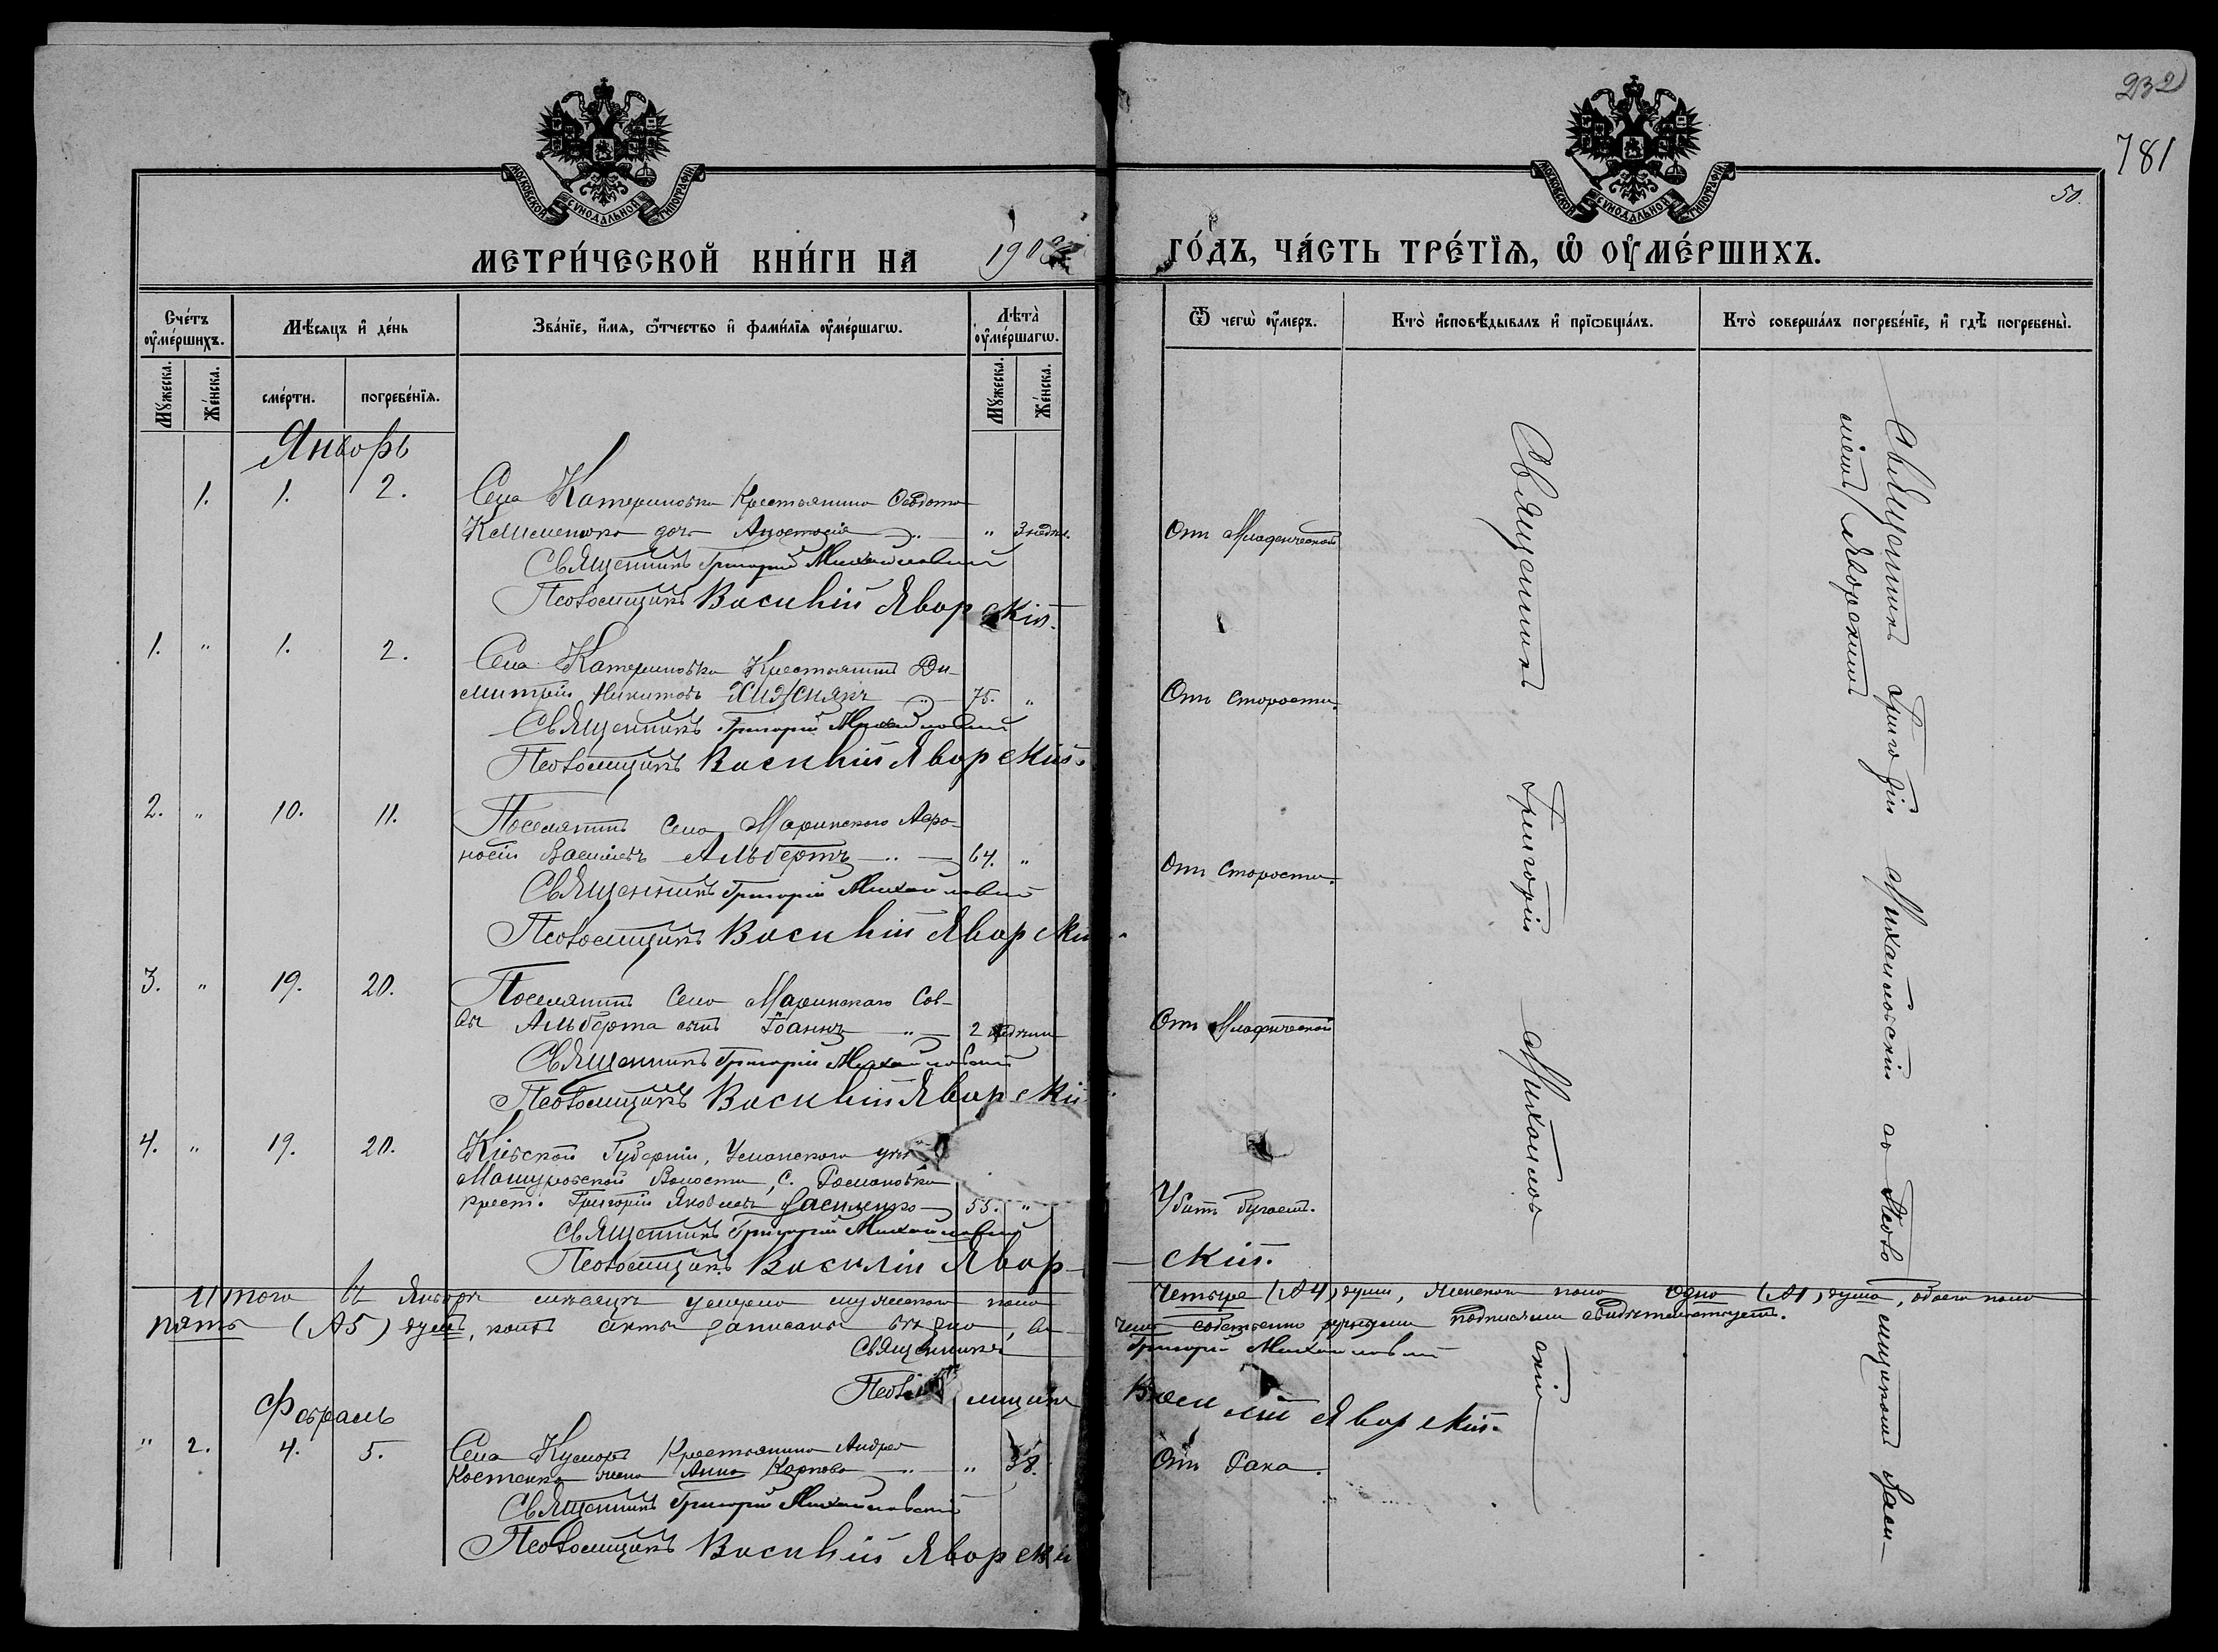 232
781
50.
МОСКОВСКОЙ СѴНОДАЛЬНОЙ ТИПОГРАФІИ
МОСКОВСКОЙ СѴНОДАЛЬНОЙ ТИПОГРАФІИ
МЕТРИ́ЧЕСКОЙ КНИ́ГИ НА 190
ГО́ДЪ, ЧА́СТЬ ТРЕ́ТЇѦ, Ѡ҆ ОУ҆МЕ́РШИХЪ.
Сче́тъ оу҆ме́ршихъ.
Мѣ́сяцъ и҆ де́нь
Зва́нїе, и҆́мѧ, ѻ҆́тчество и҆ фами́лїѧ оу҆ме́ршагѡ.
Лѣта̀ оу҆ме́ршагѡ.
Ѿ чегѡ̀ оу҆́меръ.
Кто̀ и҆сповѣ́дывалъ и҆ прїѡбща́лъ.
Кто̀ соверша́лъ погребе́нїе, и҆ гдѣ̀ погребены̀.
Мꙋ́жеска.
Же́нска.
сме́рти.
погребе́нїѧ.
Мꙋ́жеска.
Же́нска.
Январь
1. 1. 2. Села Катериновки Крестьянина Ѳеодота
Клименюка дочь Анастасія " 3 недѣл. Отъ Младенческой
Священникъ Григорій Михайловскій
Псаломщикъ Василій Яворскій.
1. " 1. 2. Села Катериновки Крестьянинъ Ди-
митрій Никитовъ Хижнякъ 75. " Отъ Старости.
Священникъ Григорій Михайловскій
Псаломщикъ Василій Яворскій.
2. " 10. 11. Поселянинъ Села Маринского Аѳа-
насій Васильевъ Альбертъ 64. " Отъ Старости.
Священникъ Григорій Михайловскій
Псаломщикъ Василій Яворскій
3. " 19. 20. Поселянина Села Маринскаго Сав-
вы Альберта сынъ Іоаннъ 2 недѣли Отъ Младенческой
Священникъ Григорій Михайловскій
Псаломщикъ Василій Яворскій
4. " 19. 20. Кіевской Губерніи, Уманского
Волости, С. Романовки
крест. Григорій Яковлевъ Василенко 55. " Убитъ бугаемъ.
Священникъ Григорій Михайловскій
Псаломщикъ Василій Явор- скій.
Итого въ Январѣ мѣсяцѣ умерло мужеского пола четыре (№ 4) души, женского пола одна (№ 1) душа, обоего пола
пять (№ 5) душъ, коихъ акты записаны вѣрно, въ чемъ собственно ручными подписями свидѣтельствуемъ.
Священникъ Григорій Михайловскій
Псаломщикъ Василій Яворскій.
Февраль
" 2. 4. 5. Села Крестьянина Андрея
Костенко жена Анна Карпова " 38. Отъ Рака.
Священникъ Григорій Михайловскій
Псаломщикъ Василій Яворскій
Священникъ Григорій Михайловскій
Священникъ Григорій Михайловскій съ Псаломщикомъ Васи-
ліемъ Яворскимъ